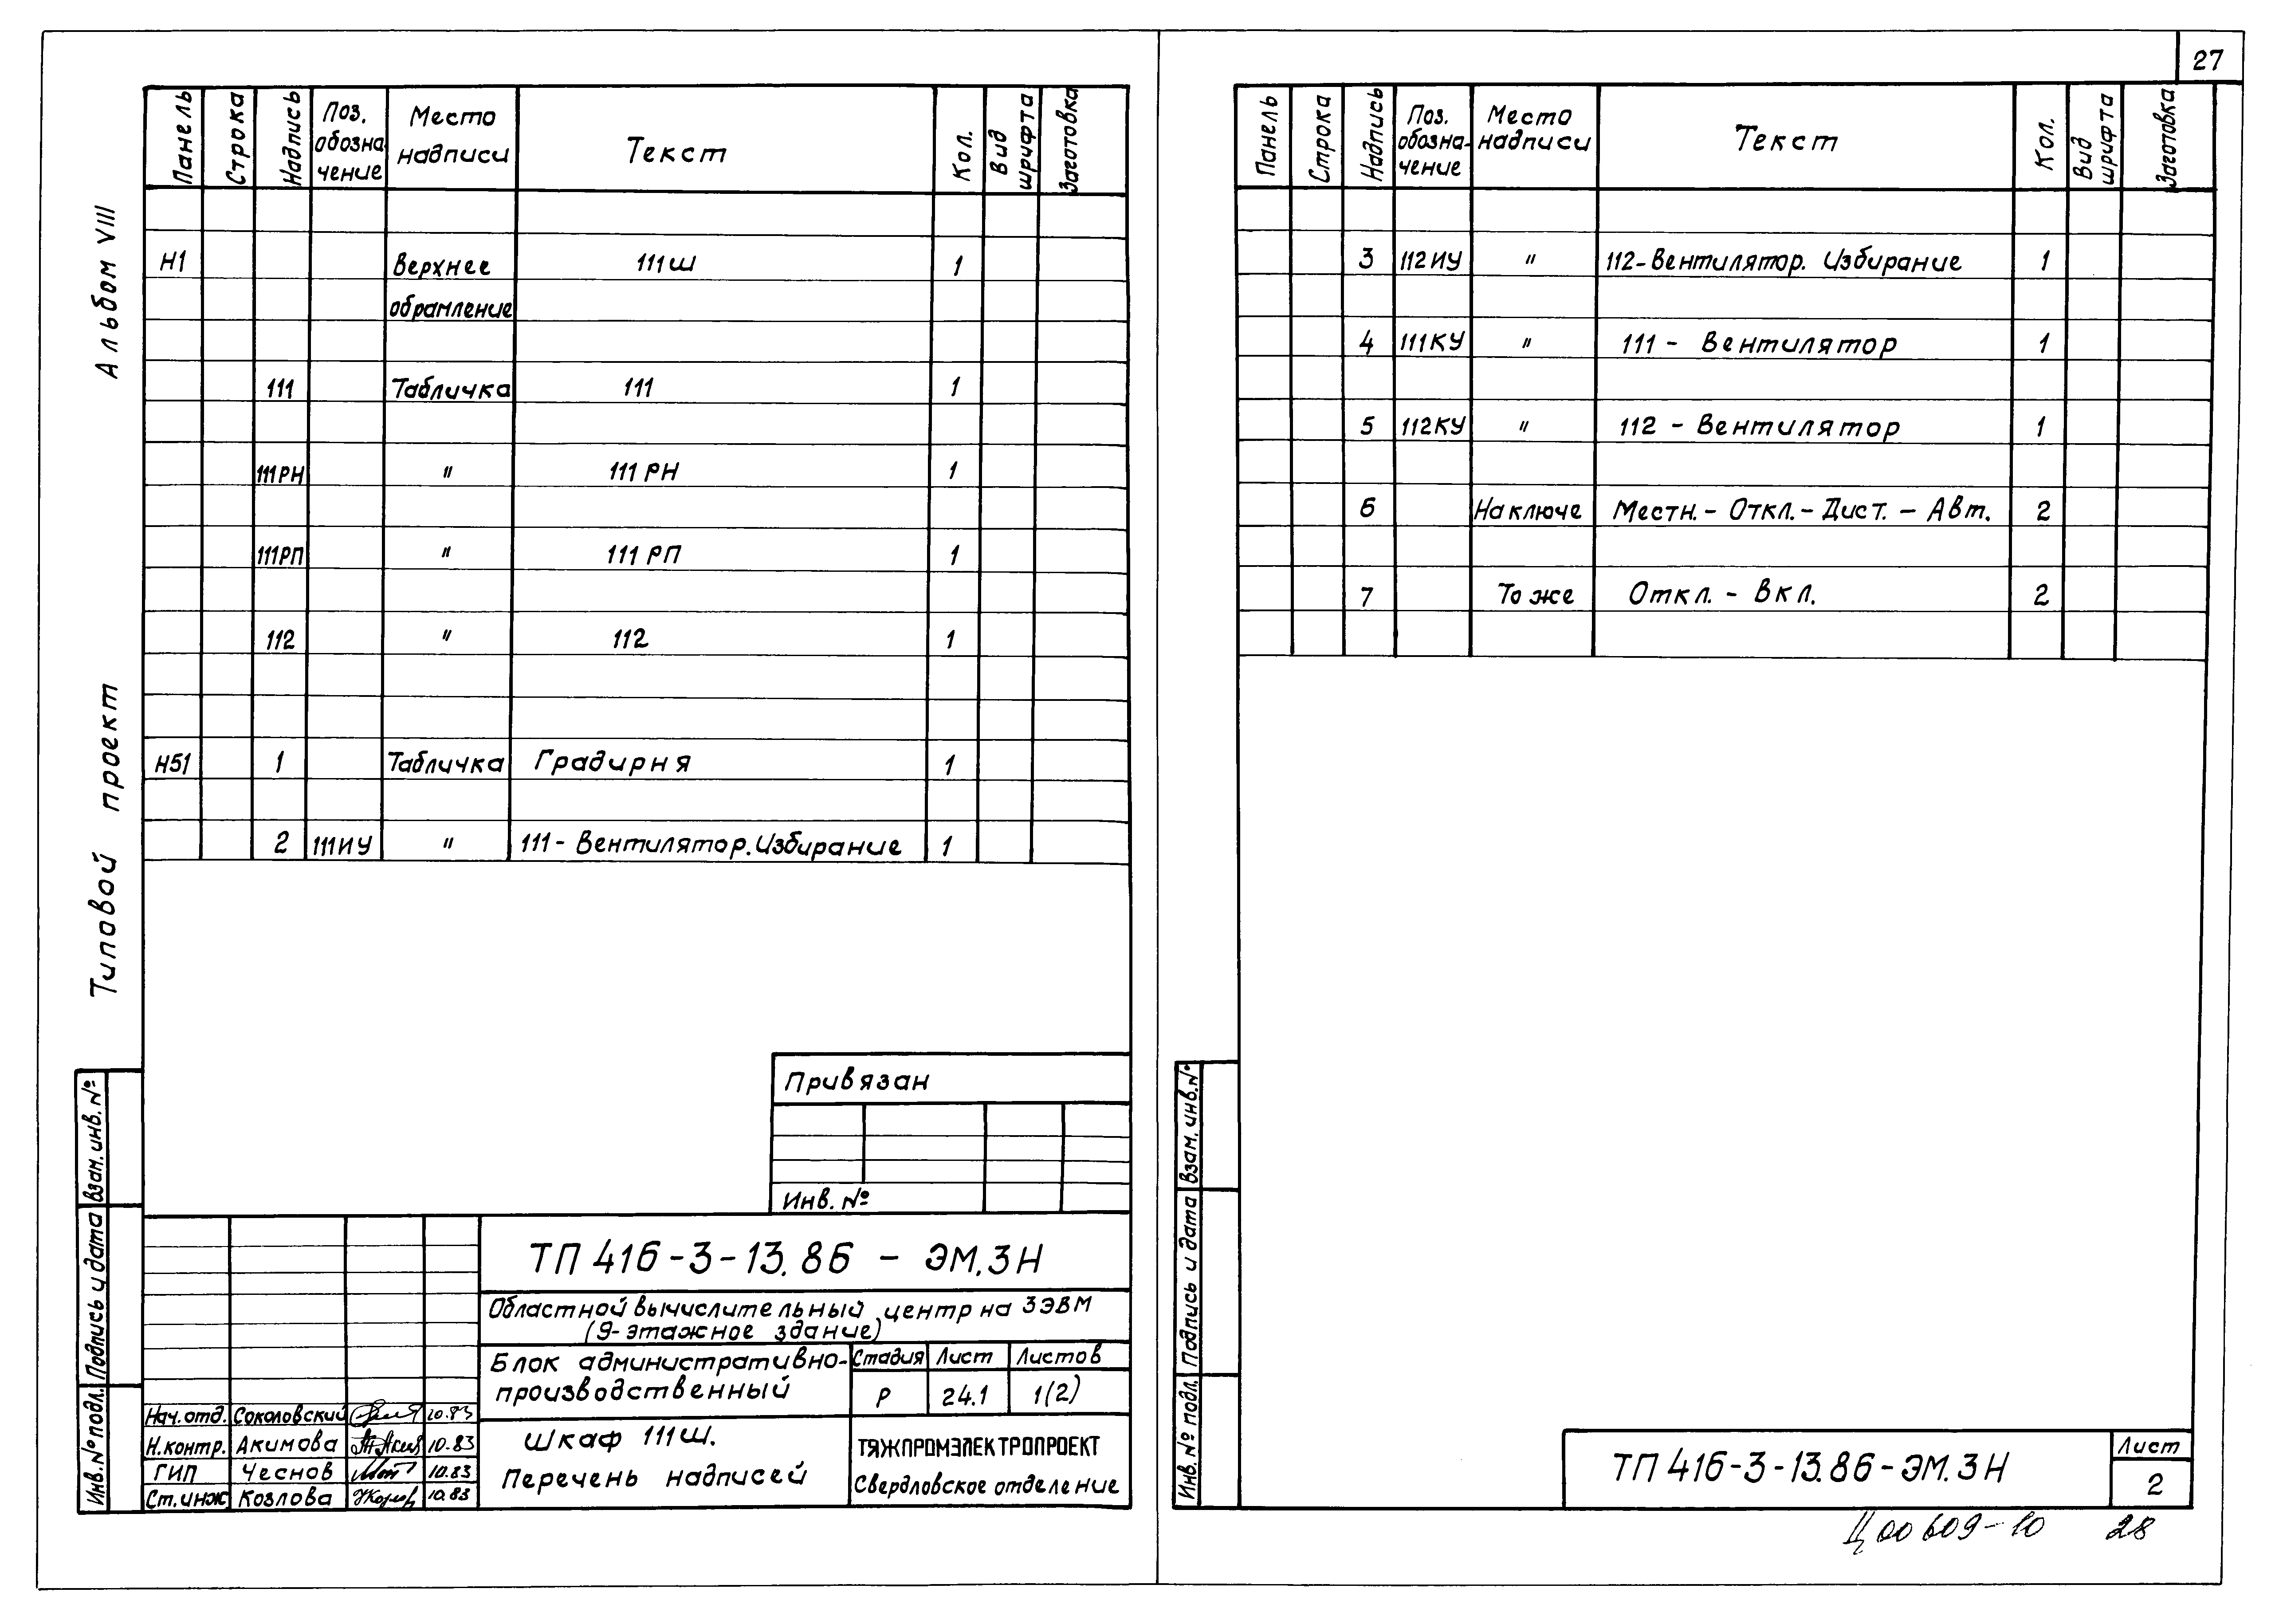 27
Альбом VIII
Типовой проект
Панель Строка Надпись Поз. обозна-чение Место надписи Текст Кол. Вид шрифта Заготовка
Н1 Верхнее 111Ш 1
обрамление
111 Табличка 111 1
111РН " 111РН 1
111РП " 111РП 1
112 " 112 1
Н51 1 Табличка Градирня 1
2 111ИУ " 111- Вентилятор. Избирание 1
Привязан
Инв. №
Взам. инв. №
Подпись и дата
Инв. № подл.
ТП 416-3-13.86 - ЭМ.3Н
Областной вычислительный центр на 3ЭВМ
(9-этажное здание)
Блок административно-
производственный
Стадия Лист Листов
Р 24.1 1(2)
Нач. отд. Соколовский 10.83
Н.контр. Акимова 10.83
ГИП Чеснов 10.83
Ст. инж Козлова 10.83
Шкаф 111Ш.
Перечень надписей
ТЯЖПРОМЭЛЕКТРОПРОЕКТ
Свердловское отделение
Панель Строка Надпись Поз. обозна-чение Место надписи Текст Кол. Вид шрифта Заготовка
3 112ИУ " 112-Вентилятор. Избирание 1
4 111КУ " 111 - Вентилятор 1
5 112КУ " 112 - Вентилятор 1
6 На ключе Местн. - Откл. - Дист. - Авт. 2
7 То же Откл. - Вкл. 2
Взам. инв. №
Подпись и дата
Инв. № подл.
ТП 416-3-13.86-ЭМ.3Н
Лист
2
Ц00609-10 28